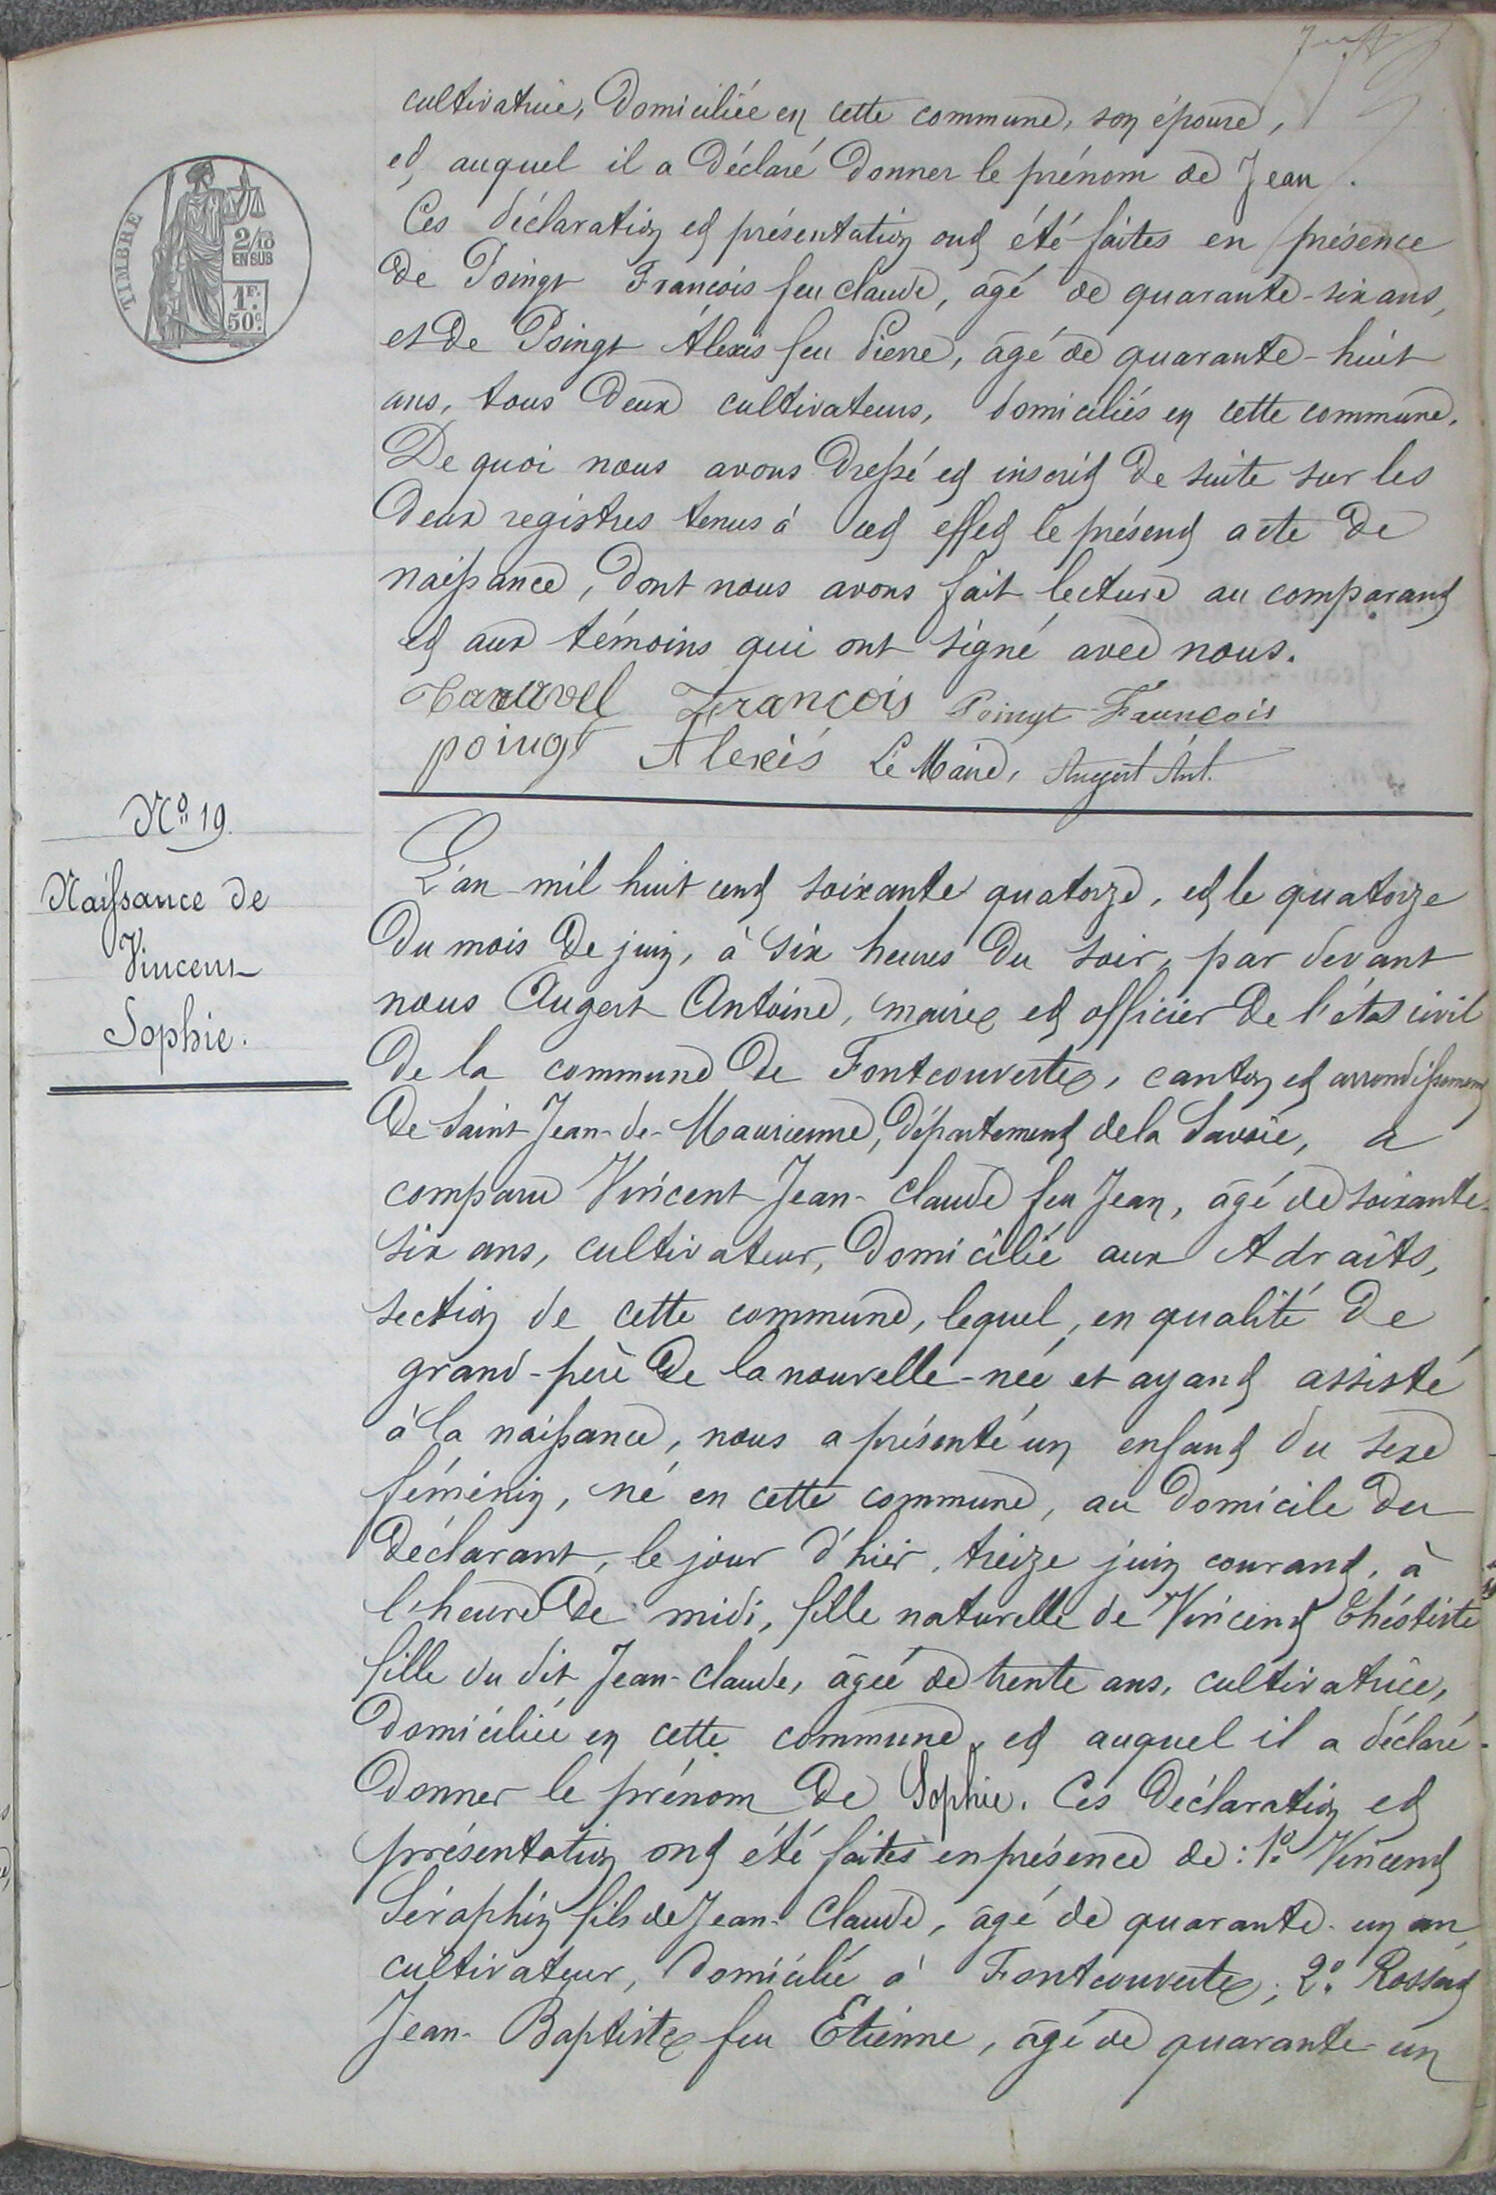 cultivatrice, domiciliée en cette commune, son épouse,
et auquel il a déclaré donner le prénom de Jean.
Ces déclaration et présentation ont été faites en présence
de Poingt François feu Claude, âgé de quarante-six ans,
et de Poingt Alexis feu Pierre, âgé de quarante-huit
ans, tous deux cultivateurs, domiciliés en cette commune.
De quoi nous avons dressé et inscrit de suite sur les
deux registres tenus à cet effet le présent acte de
naissance, dont nous avons fait lecture au comparant
et aux témoins qui ont signé avec nous.
François Poingt François
poingt Alexis Le Maire, Augert Ant.
TIMBRE
2/10
EN SUS
1F.
50c.
No 19.
Naissance de
Vincent
Sophie.
L'an mil huit cent soixante quatorze, et le quatorze
du mois de juin, à six heures du soir, par devant
nous Augert Antoine, maire et officier de l'état civil
de la commune de Fontcouverte, canton et arrondissement
de Saint-Jean-de-Maurienne, département de la Savoie, a
comparu Vincent Jean-Claude feu Jean, âgé de soixante-
six ans, cultivateur, domicilié aux Adraits,
section de cette commune, lequel, en qualité de
grand-père de la nouvelle-née et ayant assisté
à la naissance, nous a présenté un enfant du sexe
féménin, né en cette commune, au domicile du
déclarant, le jour d'hier, treize juin courant, à
l'heure de midi, fille naturelle de Vincent Théotiste
fille du dit Jean-Claude, âgée de trente ans, cultivatrice,
domiciliée en cette commune, et auquel il a déclaré
donner le prénom de Sophie. Ces déclaration et
présentation ont été faites en présence de: 1o Vincent
Séraphin fils de Jean-Claude, âgé de quarante-un an,
cultivateur, domicilié à Fontcouverte; 2o Rossat
Jean-Baptiste feu Etienne, âgé de quarante-un